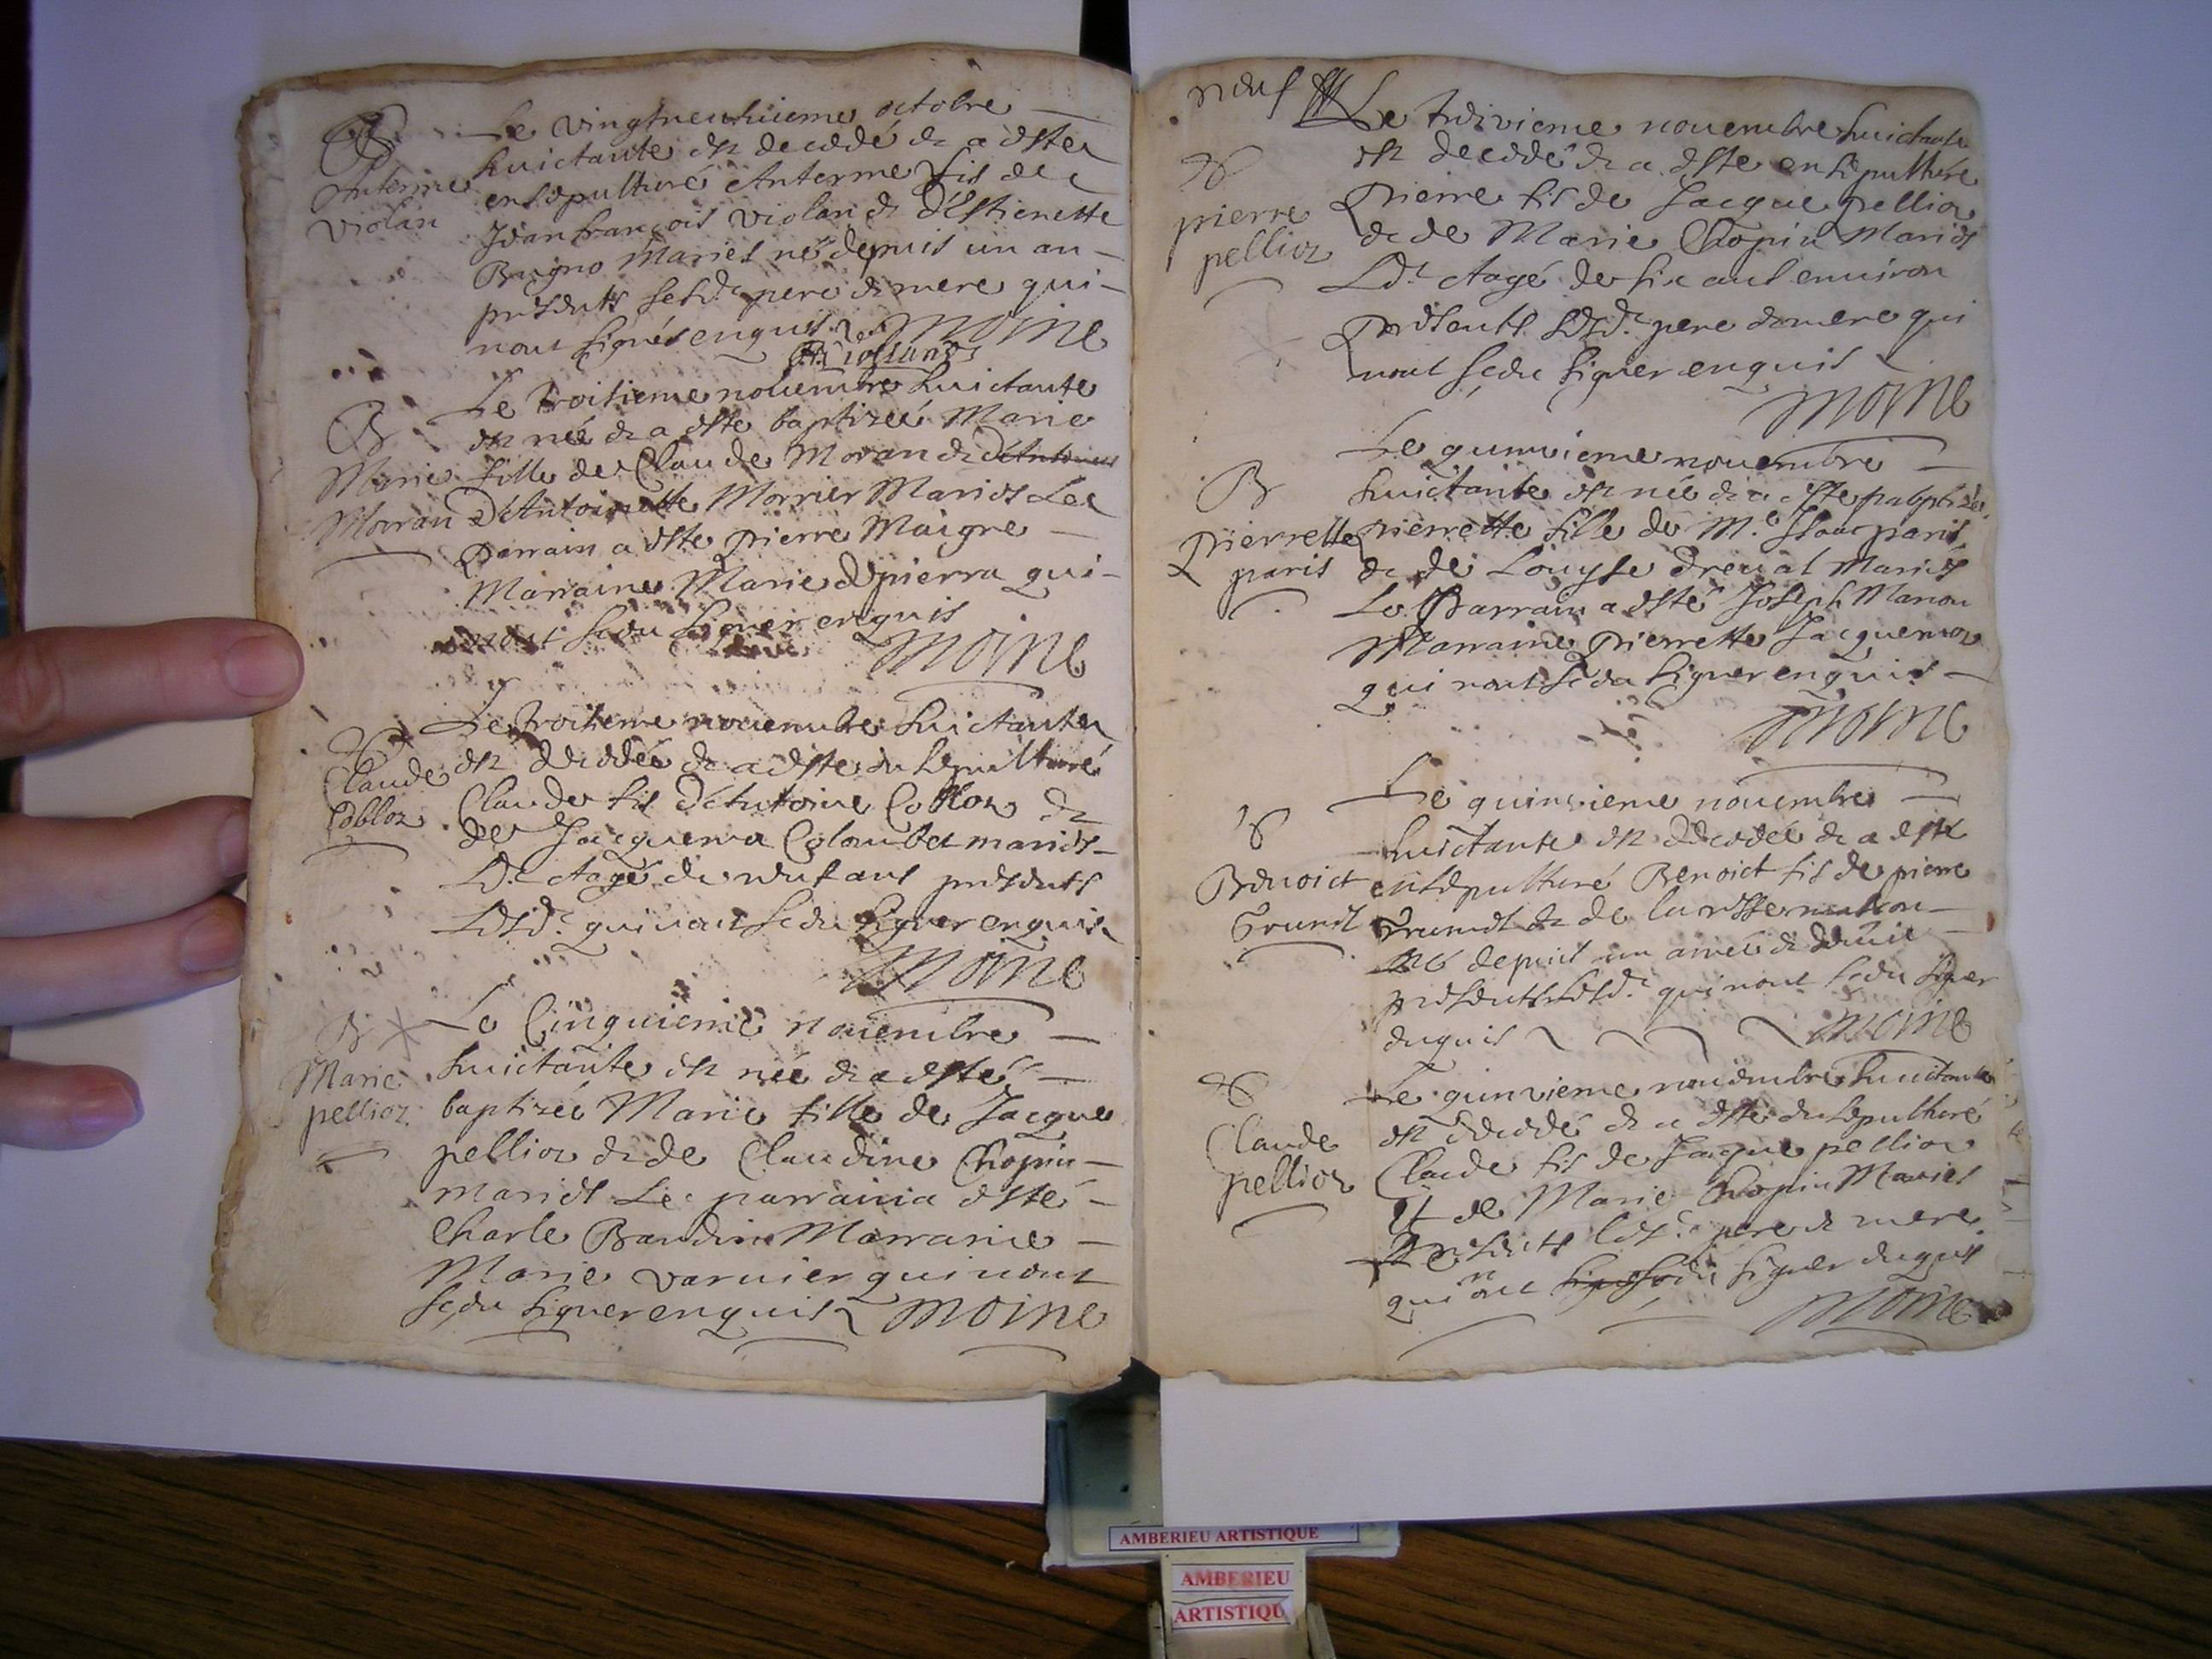 Le vingtneuvieme octobre
huictante est decedé et a estez
ensepulturé Anterme fis de
Jean francois violan et d'Estienette
Brugno Maries né depuis un an
presents sesd. pere et mere qui
nont signés enquis Moine
Anterme
violan
Le troisieme novembre huictante
est née et a este baptizeé Marie
fille de Claude Morran et
D'Antoinette Morrier Maries Le
parrain a este pierre Maigre
Marraine Marie depierra qui
nont sceu signer enquis
Moine
B
Marie
Morran
Le troisieme novembre huictante
est decedée et a este ensepulturé
Claude fis d'Antoine Cobloz et
de Jacquema Colombet maries
Ld. Aagé de neuf ans presents
Lesd. qui nont sceu signer enquis
Moine
Claude
Cobloz
Le Cinquieme novembre
huictante est née et a esté
baptizée Marie fille de Jacque
pellioz et de Claudine Chopin
maries Le parrain a esté
Charle Baudin Marraine
Marie varnier qui nont
sceu signer enquis Moine
B
Marie
pellioz
neuf
Le treizieme novembre huictante
est decedé et a este ensepulturé
pierre fis de Jacque pellioz
et de Marie Chopin Maries
Ld. Aagé de six ans environ
presents Lesd. pere et mere qui
nont sceu signer enquis
Moine
pierre
pellioz
Le quinzieme novembre
huictante est née et a este baptizée
pierrette fille de M.e Isaac paris
et de Louyse Dreval Maries
Le Parrain a esté Joseph Marion
Marraine Pierrette Jacquemoz
qui nont sceu signer enquis
Moine
B
Pierrette
paris
Le quinzieme novembre
huictante est decedée et a esté
ensepulturé Benoict fis de pierre
et de
né depuis un anneé et demie
presents Lesd. qui nont sceu signer
enquis Moine
Benoict
Le quinzieme novembre huictante
est decedé et a este ensepulturé
Claude fis de Jacque pellioz
et de Marie Chopin Maries
Presents Lesd. pere et mere
qui nont sceu signer enquis
Moine
Claude
pellioz
AMBERIEU ARTISTIQUE
AMBERIEU
ARTISTIQU